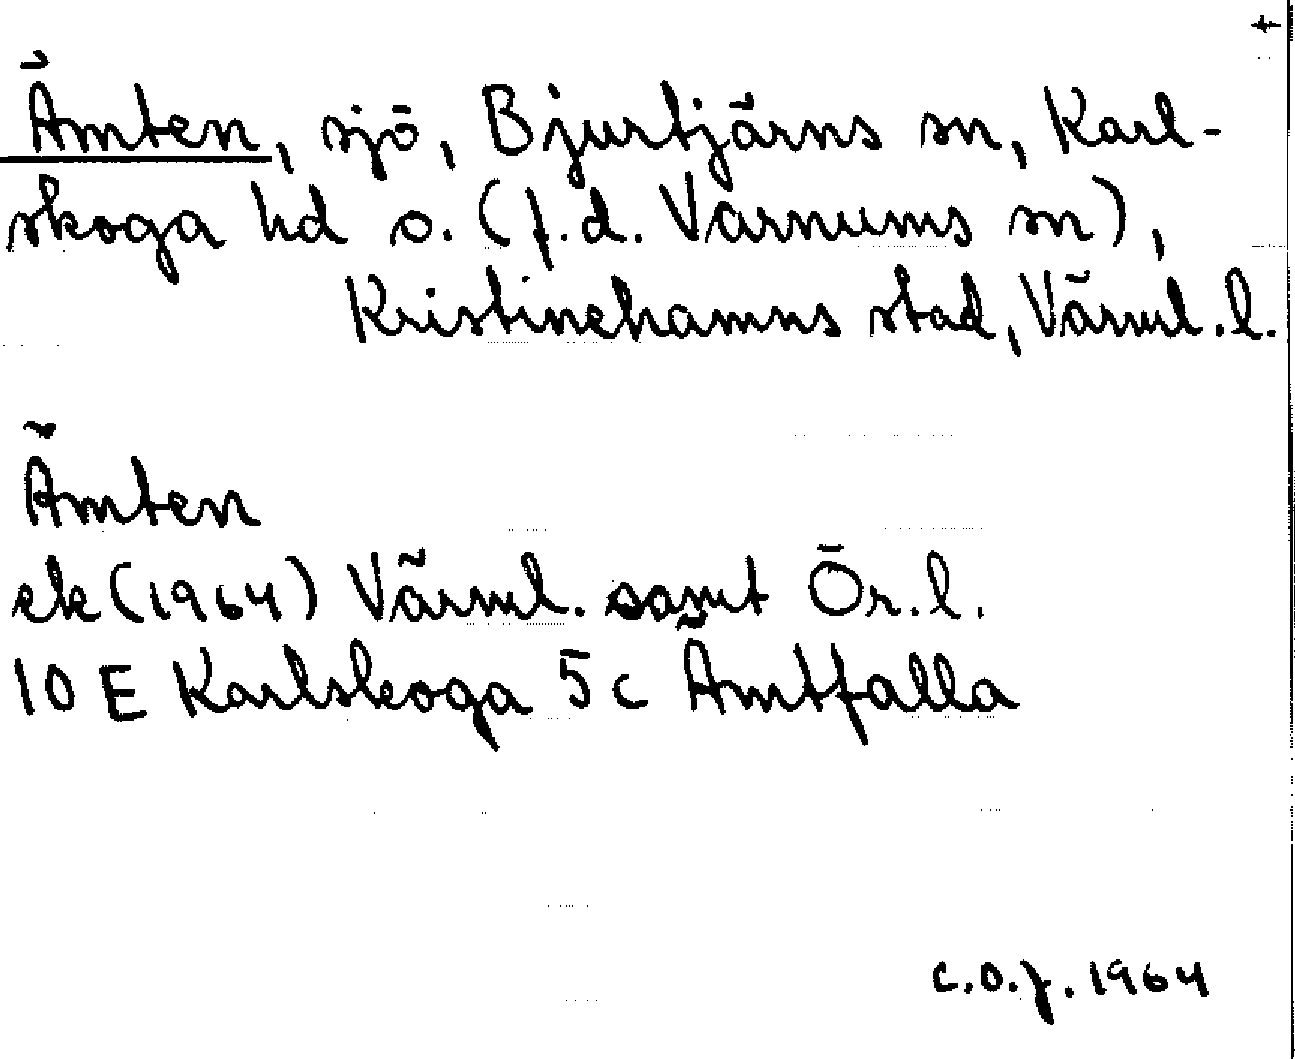 +
Ämten, sjö, Bjurtjärns sn, Karl-
skoga hd o. (f.d. Varnums sn),
Kristinehamns stad, Värml. l.
Ämten
ek (1964) Värml. samt Ör. l.
10 E Karlskoga 5c Ämtfalla
C.O.J. 1964